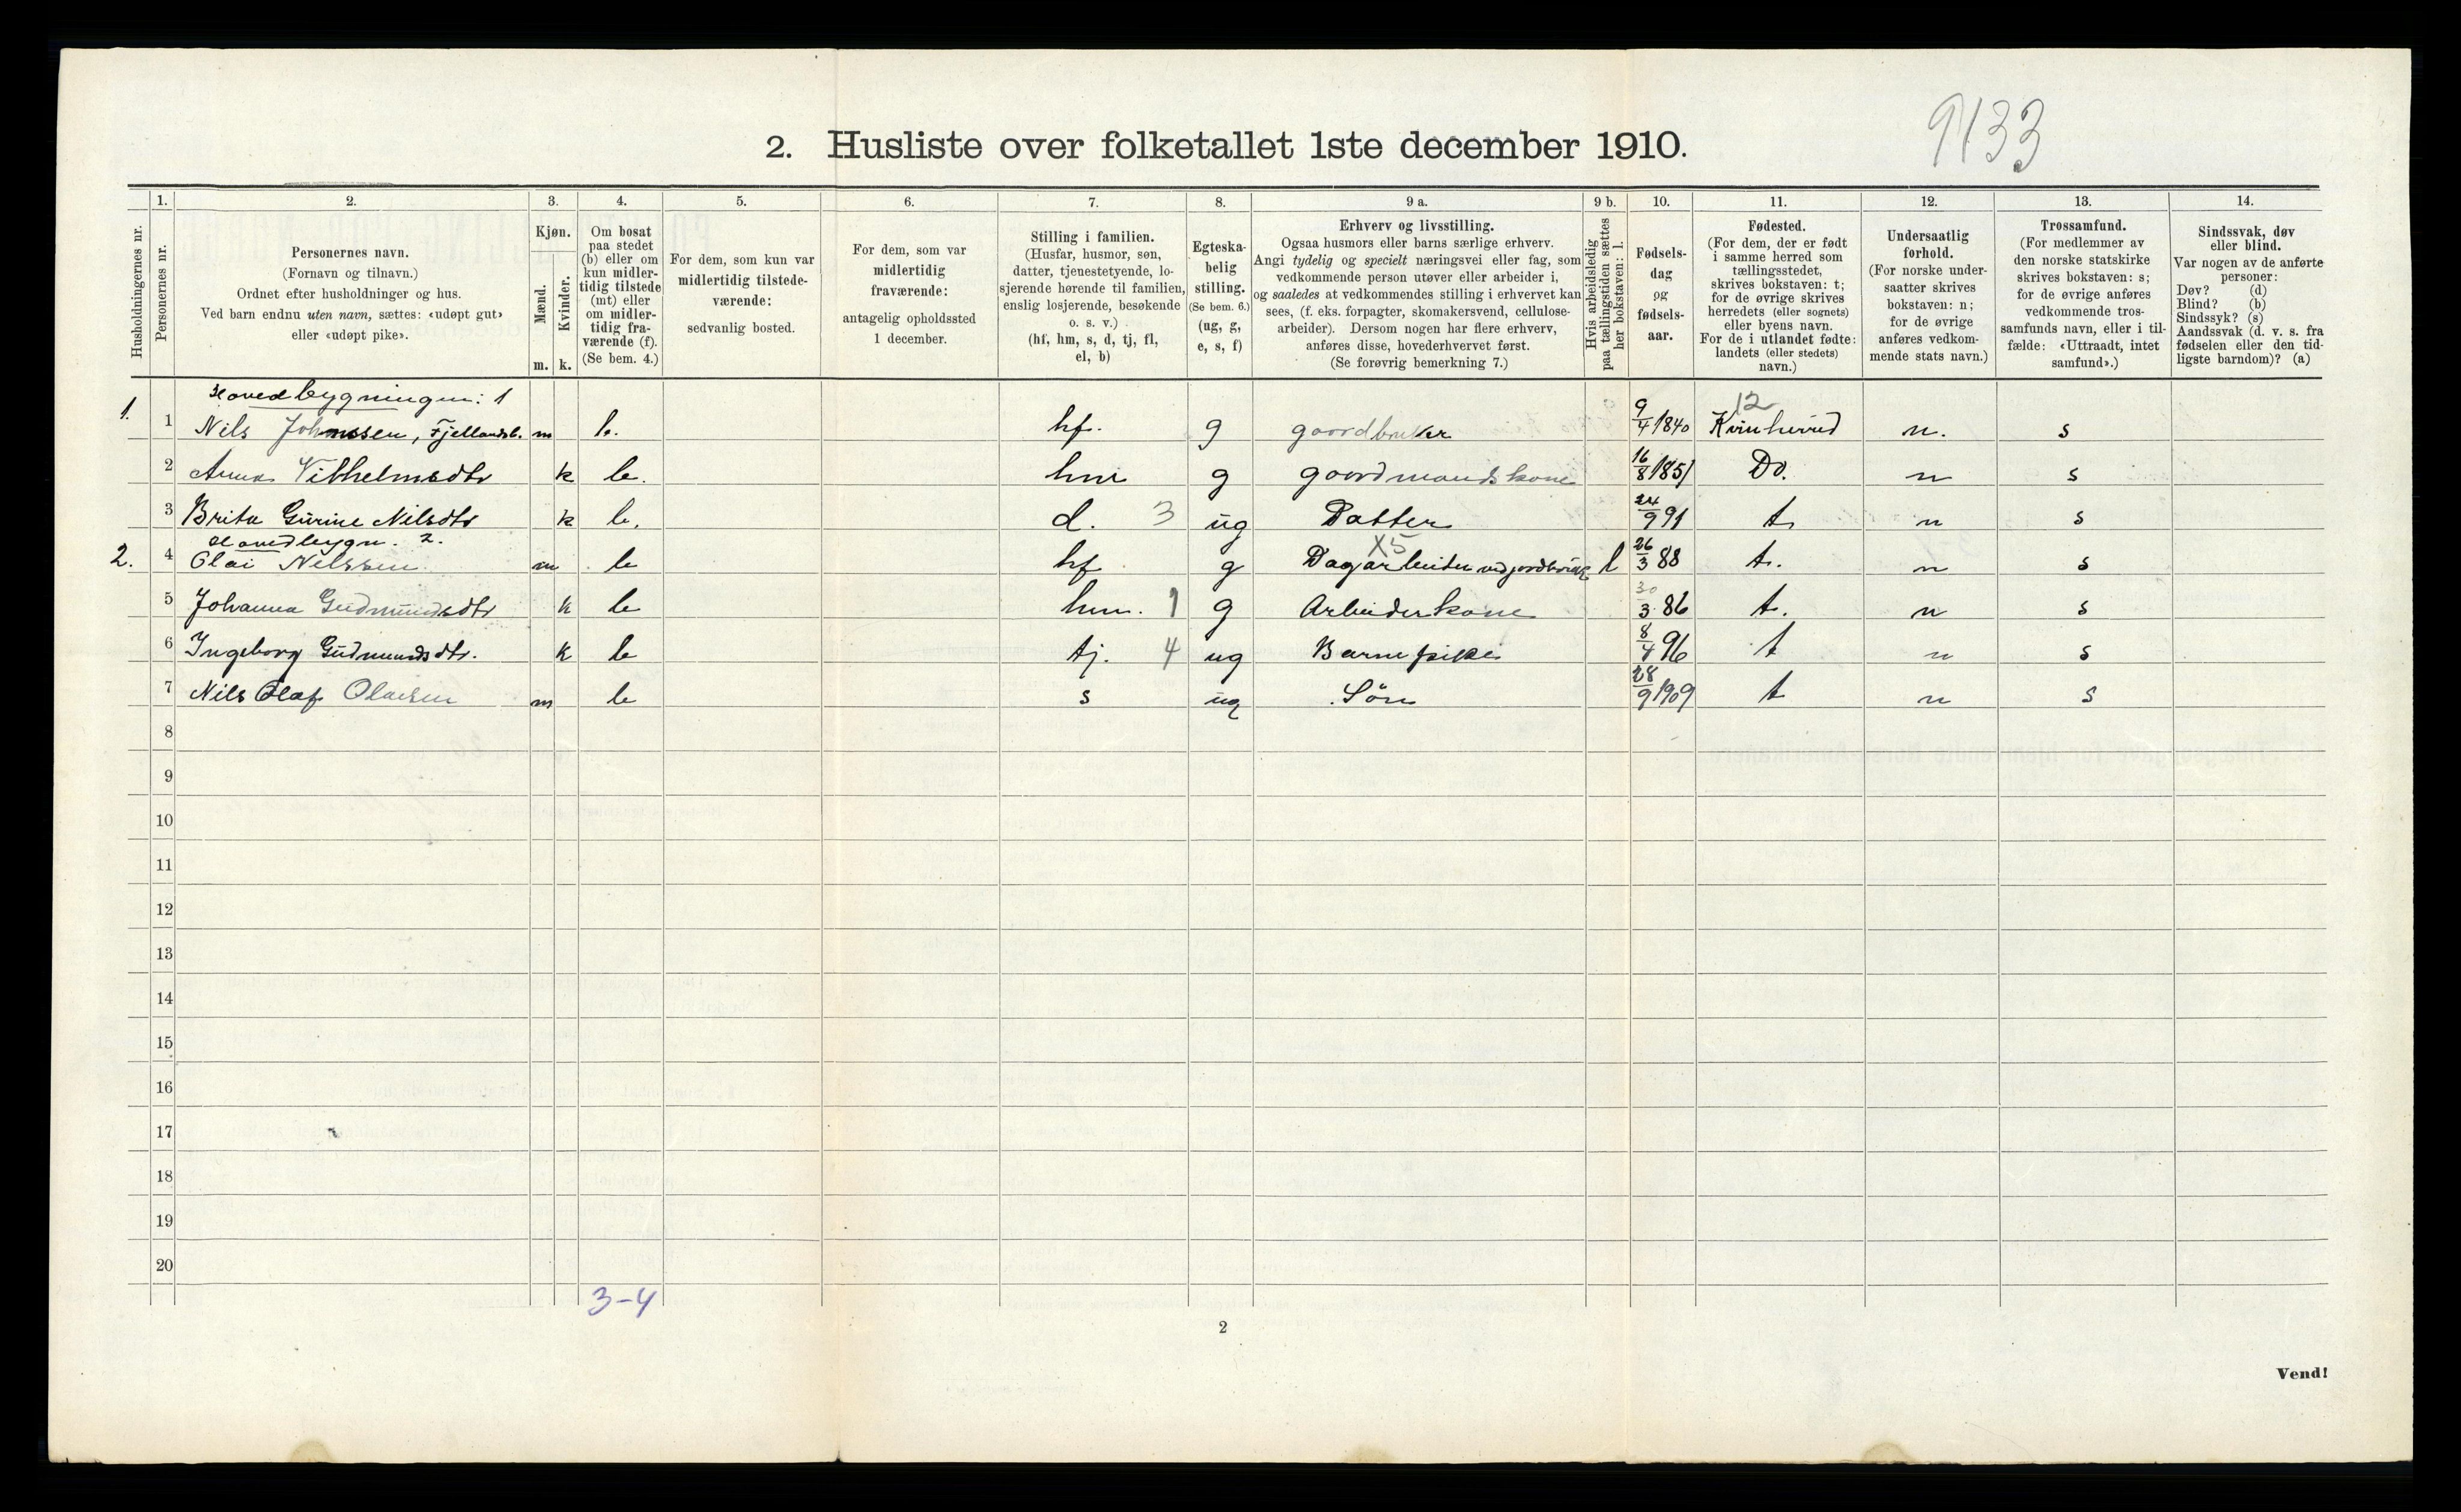 9133
2. Husliste over folketallet 1ste december 1910.
1. 2. 3. 4. 5. 6. 7. 8. 9 a. 9 b. 10. 11. 12. 13. 14.
Husholdningernes nr.
Personernes nr.
Personernes navn.
(Fornavn og tilnavn.)
Ordnet efter husholdninger og hus.
Ved barn endnu uten navn, sættes: «udøpt gut»
eller «udøpt pike».
Kjøn.
Mænd.
Kvinder.
m. k.
Om bosat
paa stedet
(b) eller om
kun midler-
tidig tilstede
(mt) eller
om midler-
tidig fra-
værende (f).
(Se bem. 4.)
For dem, som kun var
midlertidig tilstede-
værende:
sedvanlig bosted.
For dem, som var
midlertidig
fraværende:
antagelig opholdssted
1 december.
Stilling i familien.
(Husfar, husmor, søn,
datter, tjenestetyende, lo-
sjerende hørende til familien,
enslig losjerende, besøkende
o. s. v.)
(hf, hm, s, d, tj, fl,
el, b)
Egteska-
belig
stilling.
(Se bem. 6.)
(ug, g,
e, s, f)
Erhverv og livsstilling.
Ogsaa husmors eller barns særlige erhverv.
Angi tydelig og specielt næringsvei eller fag, som
vedkommende person utøver eller arbeider i,
og saaledes at vedkommendes stilling i erhvervet kan
sees, (f. eks. forpagter, skomakersvend, cellulose-
arbeider). Dersom nogen har flere erhverv,
anføres disse, hovederhvervet først.
(Se forøvrig bemerkning 7.)
Hvis arbeidsledig
paa tællingstiden sættes
her bokstaven: l.
Fødsels-
dag
og
fødsels-
aar.
Fødested.
(For dem, der er født
i samme herred som
tællingsstedet,
skrives bokstaven: t;
for de øvrige skrives
herredets (eller sognets)
eller byens navn.
For de i utlandet fødte:
landets (eller stedets)
navn.)
Undersaatlig
forhold.
(For norske under-
saatter skrives
bokstaven: n;
for de øvrige
anføres vedkom-
mende stats navn.)
Trossamfund.
(For medlemmer av
den norske statskirke
skrives bokstaven: s;
for de øvrige anføres
vedkommende tros-
samfunds navn, eller i til-
fælde: «Uttraadt, intet
samfund».)
Sindssvak, døv
eller blind.
Var nogen av de anførte
personer:
Døv? (d)
Blind? (b)
Sindssyk? (s)
Aandssvak (d. v. s. fra
fødselen eller den tid-
ligste barndom)? (a)
Hovedbygningen: 1
12
1. 1 Nils Johnssen, m b. hf. g gaardbruker 9/4 1840 Kvinherred n. s
2 Anna Vilhelmsdtr k b. hm g gaardmandskone 16/8 1851 Do. n s
3 Brita Gurine Nilsdtr k b. d. 3 ug Datter 24/9 91 t. n s
Hovedbygn. 2.
X5
2. 4 Olai Nilssen m b hf g Dagarbeider ved jordbruk l 26/3 88 t. n s
5 Johanna Gudmundsdtr k b hm. 1 g Arbeiderkone 30/3 86 t. n s
6 Ingeborg Gudmundsdtr. k b tj. 4 ug Barnepike 8/4 96 t n s
7 Nils Olaf Olaisen m b s ug Søn 28/9 1909 t n s
8
9
10
11
12
13
14
15
16
17
18
19
20
3-4
2
Vend!